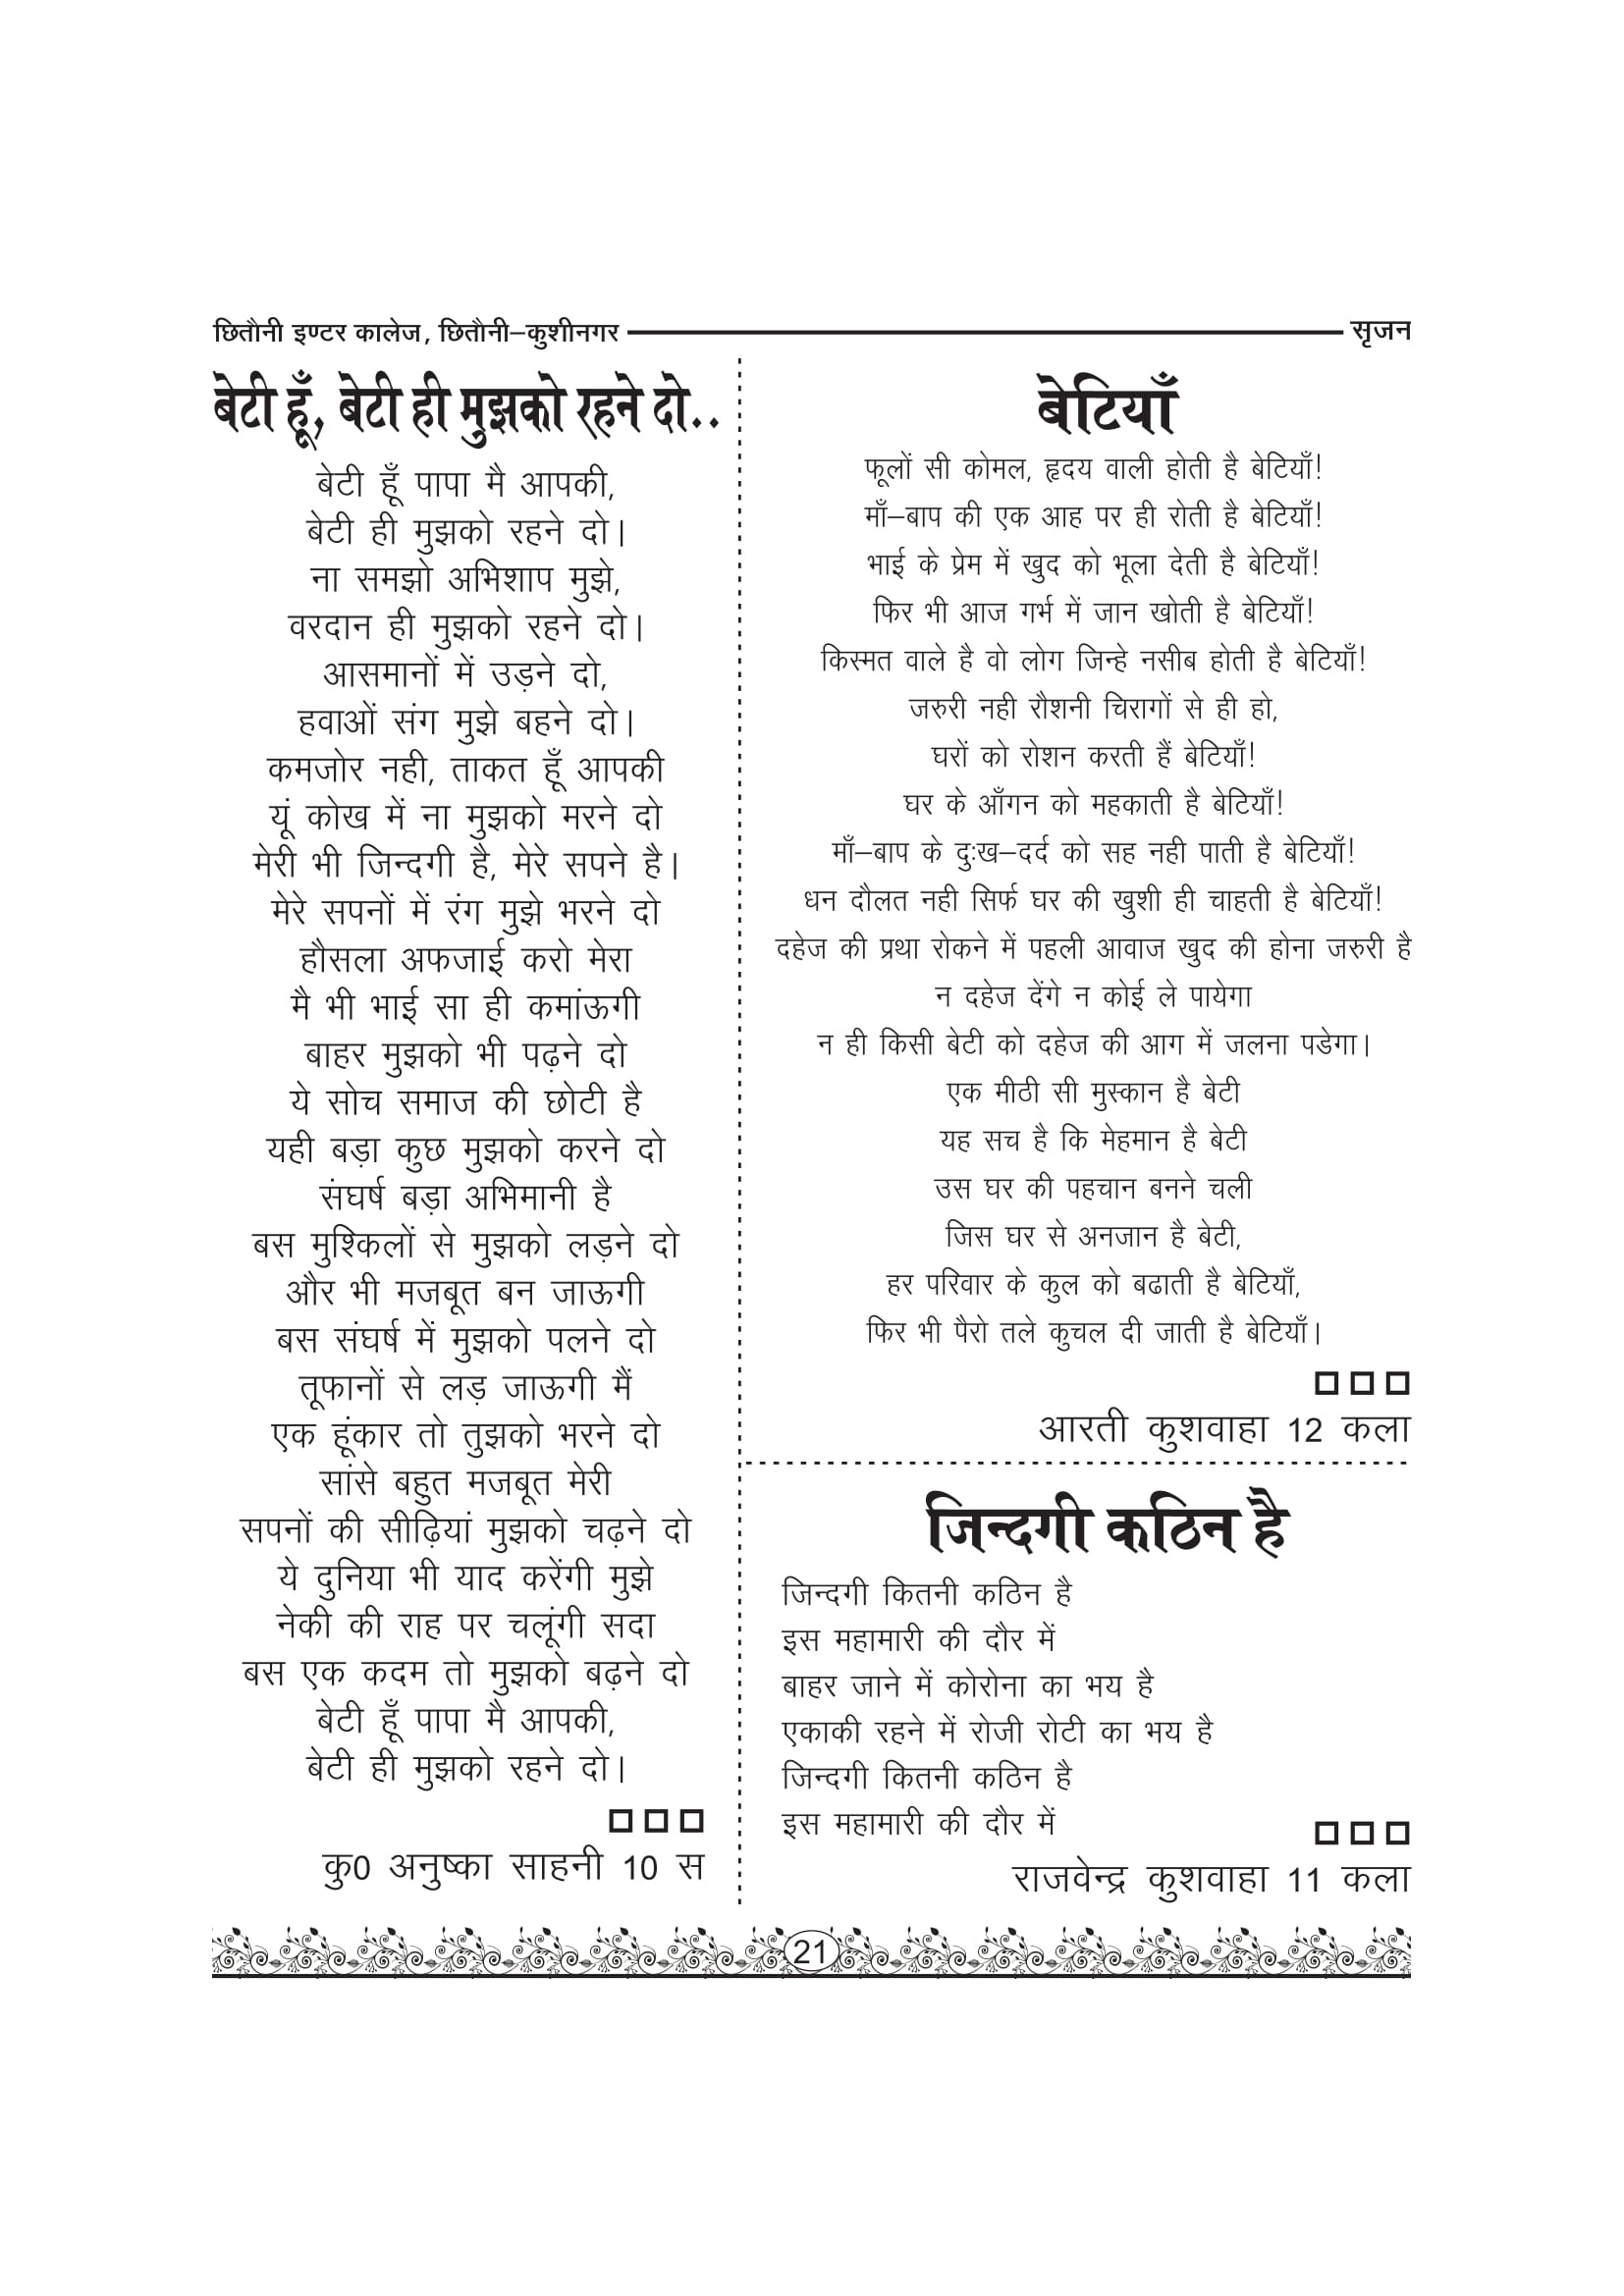 छितौनी इण्टर कालेज, छितौनी–कुशीनगर
सृजन
बेटी हूँ, बेटी ही मुझको रहने दो..
बेटी हूँ पापा मै आपकी,
बेटी ही मुझको रहने दो।
ना समझो अभिशाप मुझे,
वरदान ही मुझको रहने दो।
आसमानों में उड़ने दो,
हवाओं संग मुझे बहने दो।
कमजोर नही, ताकत हूँ आपकी
यूं कोख में ना मुझको मरने दो
मेरी भी जिन्दगी है, मेरे सपने है।
मेरे सपनों में रंग मुझे भरने दो
हौसला अफजाई करो मेरा
मै भी भाई सा ही कमांऊगी
बाहर मुझको भी पढ़ने दो
ये सोच समाज की छोटी है
यही बड़ा कुछ मुझको करने दो
संघर्ष बड़ा अभिमानी है
बस मुश्किलों से मुझको लड़ने दो
और भी मजबूत बन जाऊगी
बस संघर्ष में मुझको पलने दो
तूफानों से लड़ जाऊगी मैं
एक हूंकार तो तुझको भरने दो
सांसे बहुत मजबूत मेरी
सपनों की सीढ़ियां मुझको चढ़ने दो
ये दुनिया भी याद करेंगी मुझे
नेकी की राह पर चलूंगी सदा
बस एक कदम तो मुझको बढ़ने दो
बेटी हूँ पापा मै आपकी,
बेटी ही मुझको रहने दो।
कु0 अनुष्का साहनी 10 स
बेटियाँ
फूलों सी कोमल, हृदय वाली होती है बेटियाँ!
माँ–बाप की एक आह पर ही रोती है बेटियाँ!
भाई के प्रेम में खुद को भूला देती है बेटियाँ!
फिर भी आज गर्भ में जान खोती है बेटियाँ!
किस्मत वाले है वो लोग जिन्हे नसीब होती है बेटियाँ!
जरुरी नही रौशनी चिरागों से ही हो,
घरों को रोशन करती हैं बेटियाँ!
घर के आँगन को महकाती है बेटियाँ!
माँ–बाप के दुःख–दर्द को सह नही पाती है बेटियाँ!
धन दौलत नही सिर्फ घर की खुशी ही चाहती है बेटियाँ!
दहेज की प्रथा रोकने में पहली आवाज खुद की होना जरुरी है
न दहेज देंगे न कोई ले पायेगा
न ही किसी बेटी को दहेज की आग में जलना पडेगा।
एक मीठी सी मुस्कान है बेटी
यह सच है कि मेहमान है बेटी
उस घर की पहचान बनने चली
जिस घर से अनजान है बेटी,
हर परिवार के कुल को बढाती है बेटियाँ,
फिर भी पैरो तले कुचल दी जाती है बेटियाँ।
आरती कुशवाहा 12 कला
जिन्दगी कठिन है
जिन्दगी कितनी कठिन है
इस महामारी की दौर में
बाहर जाने में कोरोना का भय है
एकाकी रहने में रोजी रोटी का भय है
जिन्दगी कितनी कठिन है
इस महामारी की दौर में
राजवेन्द्र कुशवाहा 11 कला
21